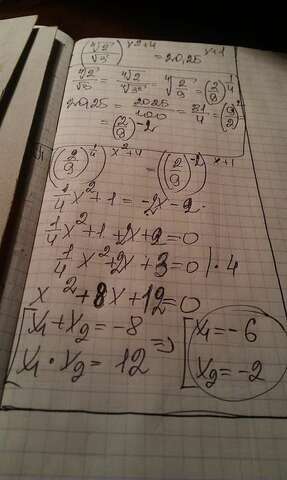 (∜2/√3)^(x²+4) = 20,25^(x+1)
∜2/√3 = ∜2/∜3² = ∜(2/9) = (2/9)^(1/4)
20,25 = 2025/100 = 81/4 = (9/2)²
= (2/9)^(-2)
((2/9)^(1/4))^(x²+4) = ((2/9)^(-2))^(x+1)
1/4x²+1 = -2x-2
1/4x²+1+2x+2=0
1/4x²+2x+3=0 | ·4
x²+8x+12=0
[x₁+x₂=-8
x₁·x₂=12
=> [x₁=-6
x₂=-2